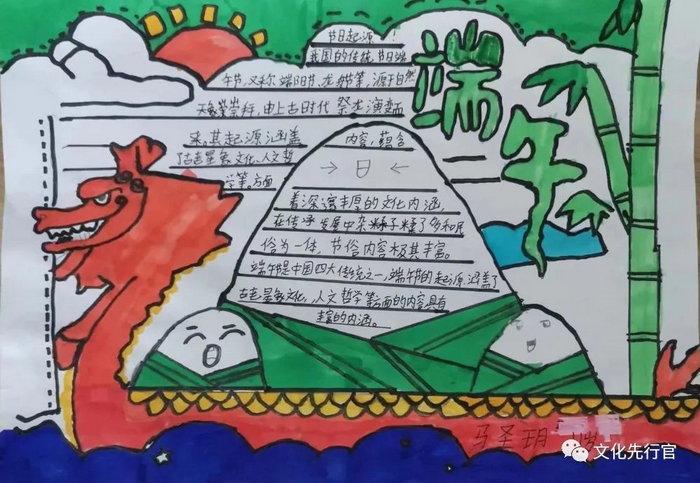 端午
节日起源!
我国的传统节日端
午节,又称端阳节、龙舟节等,源于自然
天象崇拜,由上古时代祭龙演变而
来。其起源涵盖
了古老星象文化、人文哲
学等。方面
内容,蕴含
→ 日 ←
着深邃丰厚的文化内涵
在传承发展中杂糅了多种民
俗为一体,节俗内容极其丰富。
端午节是中国四大传统之一,端午节的起源涵盖了
古老星象文化、人文哲学等方面的内容具有
丰富的内涵。
马圣玥
文化先行官